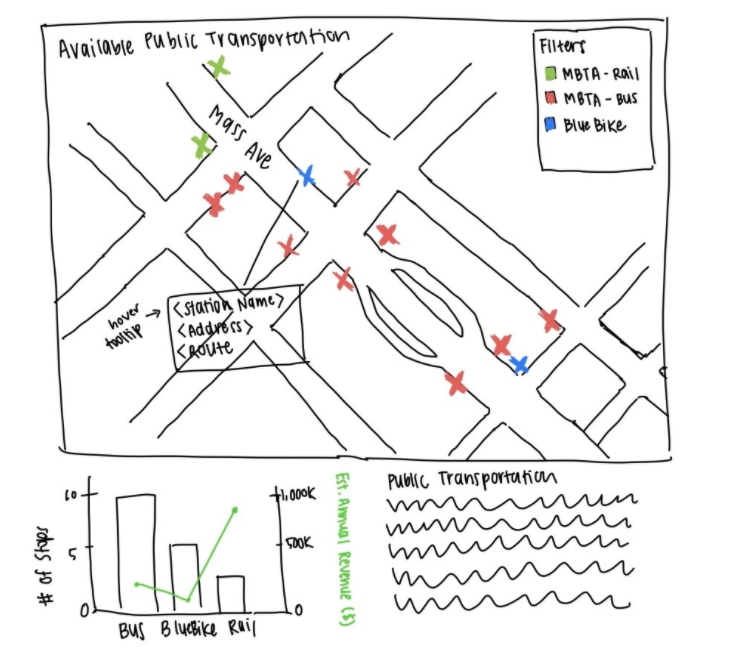 Available Public Transportation
Filters
MBTA-Rail
MBTA-Bus
Blue Bike
Mass Ave
hover
tooltip
<Station Name>
<Address>
<Route
# of Stops
10
5
0
Bus BlueBike Rail
1,000K
500K
0
Est. Annual Revenue ($)
Public Transportation